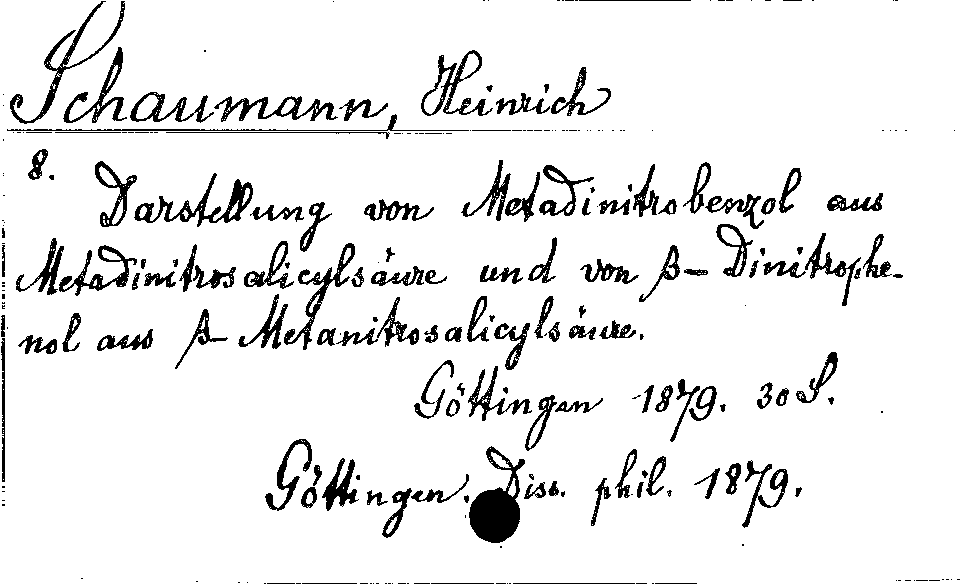 Schaumann, Heinrich
8.
Darstellung von Metadinitrobenzol aus
Metadinitrosalicylsäure und von β- Dinitrophe-
nol aus β- Metanitrosalicylsäure.
Göttingen 1879. 30 S.
Göttingen. Diss. phil. 1879.